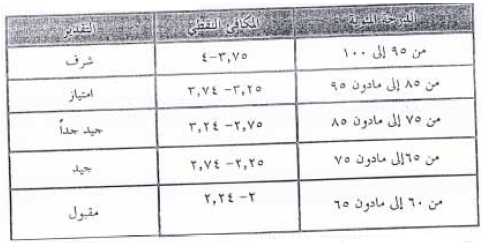 الدرجة المئوية المكافئ النقطي التقدير
من ٩٥ إلى ١٠٠ ٣,٧٥-٤ شرف
من ٨٥ إلى مادون ٩٥ ٣,٢٥-٣,٧٤ امتياز
من ٧٥ إلى مادون ٨٥ ٢,٧٥-٣,٢٤ جيد جداً
من ٦٥ إلى مادون ٧٥ ٢,٢٥-٢,٧٤ جيد
من ٦٠ إلى مادون ٦٥ ٢-٢,٢٤ مقبول